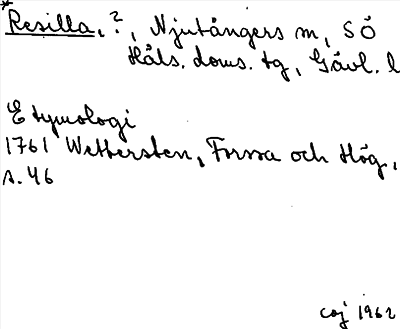 *Resilla, ?, Njutångers sn, SÖ
Häls. doms. tg, Gävl. l
Etymologi
1761 Wettersten, Forssa och Hög,
s. 46
caj 1962